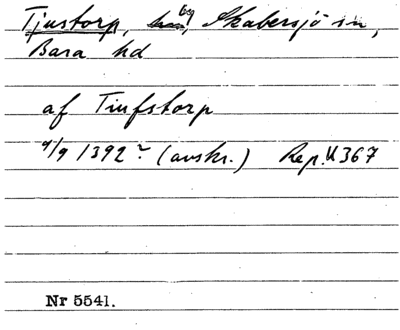 Tjustorp, by, Skabersjö sn,
Bara hd
af Tiufstorp
4/9 1392 (avskr.) Rep. II 367
Nr 5541.